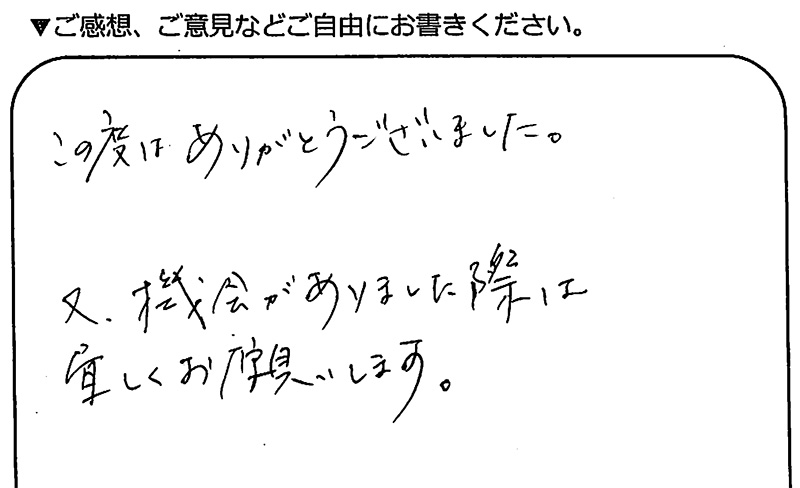 ▼ご感想、ご意見などご自由にお書きください。
この度は ありがとうございました。
又、機会がありました際は
宜しくお願いします。